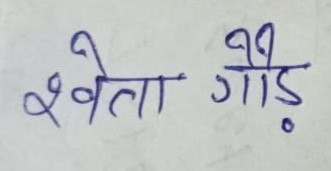 श्वेता गौड़